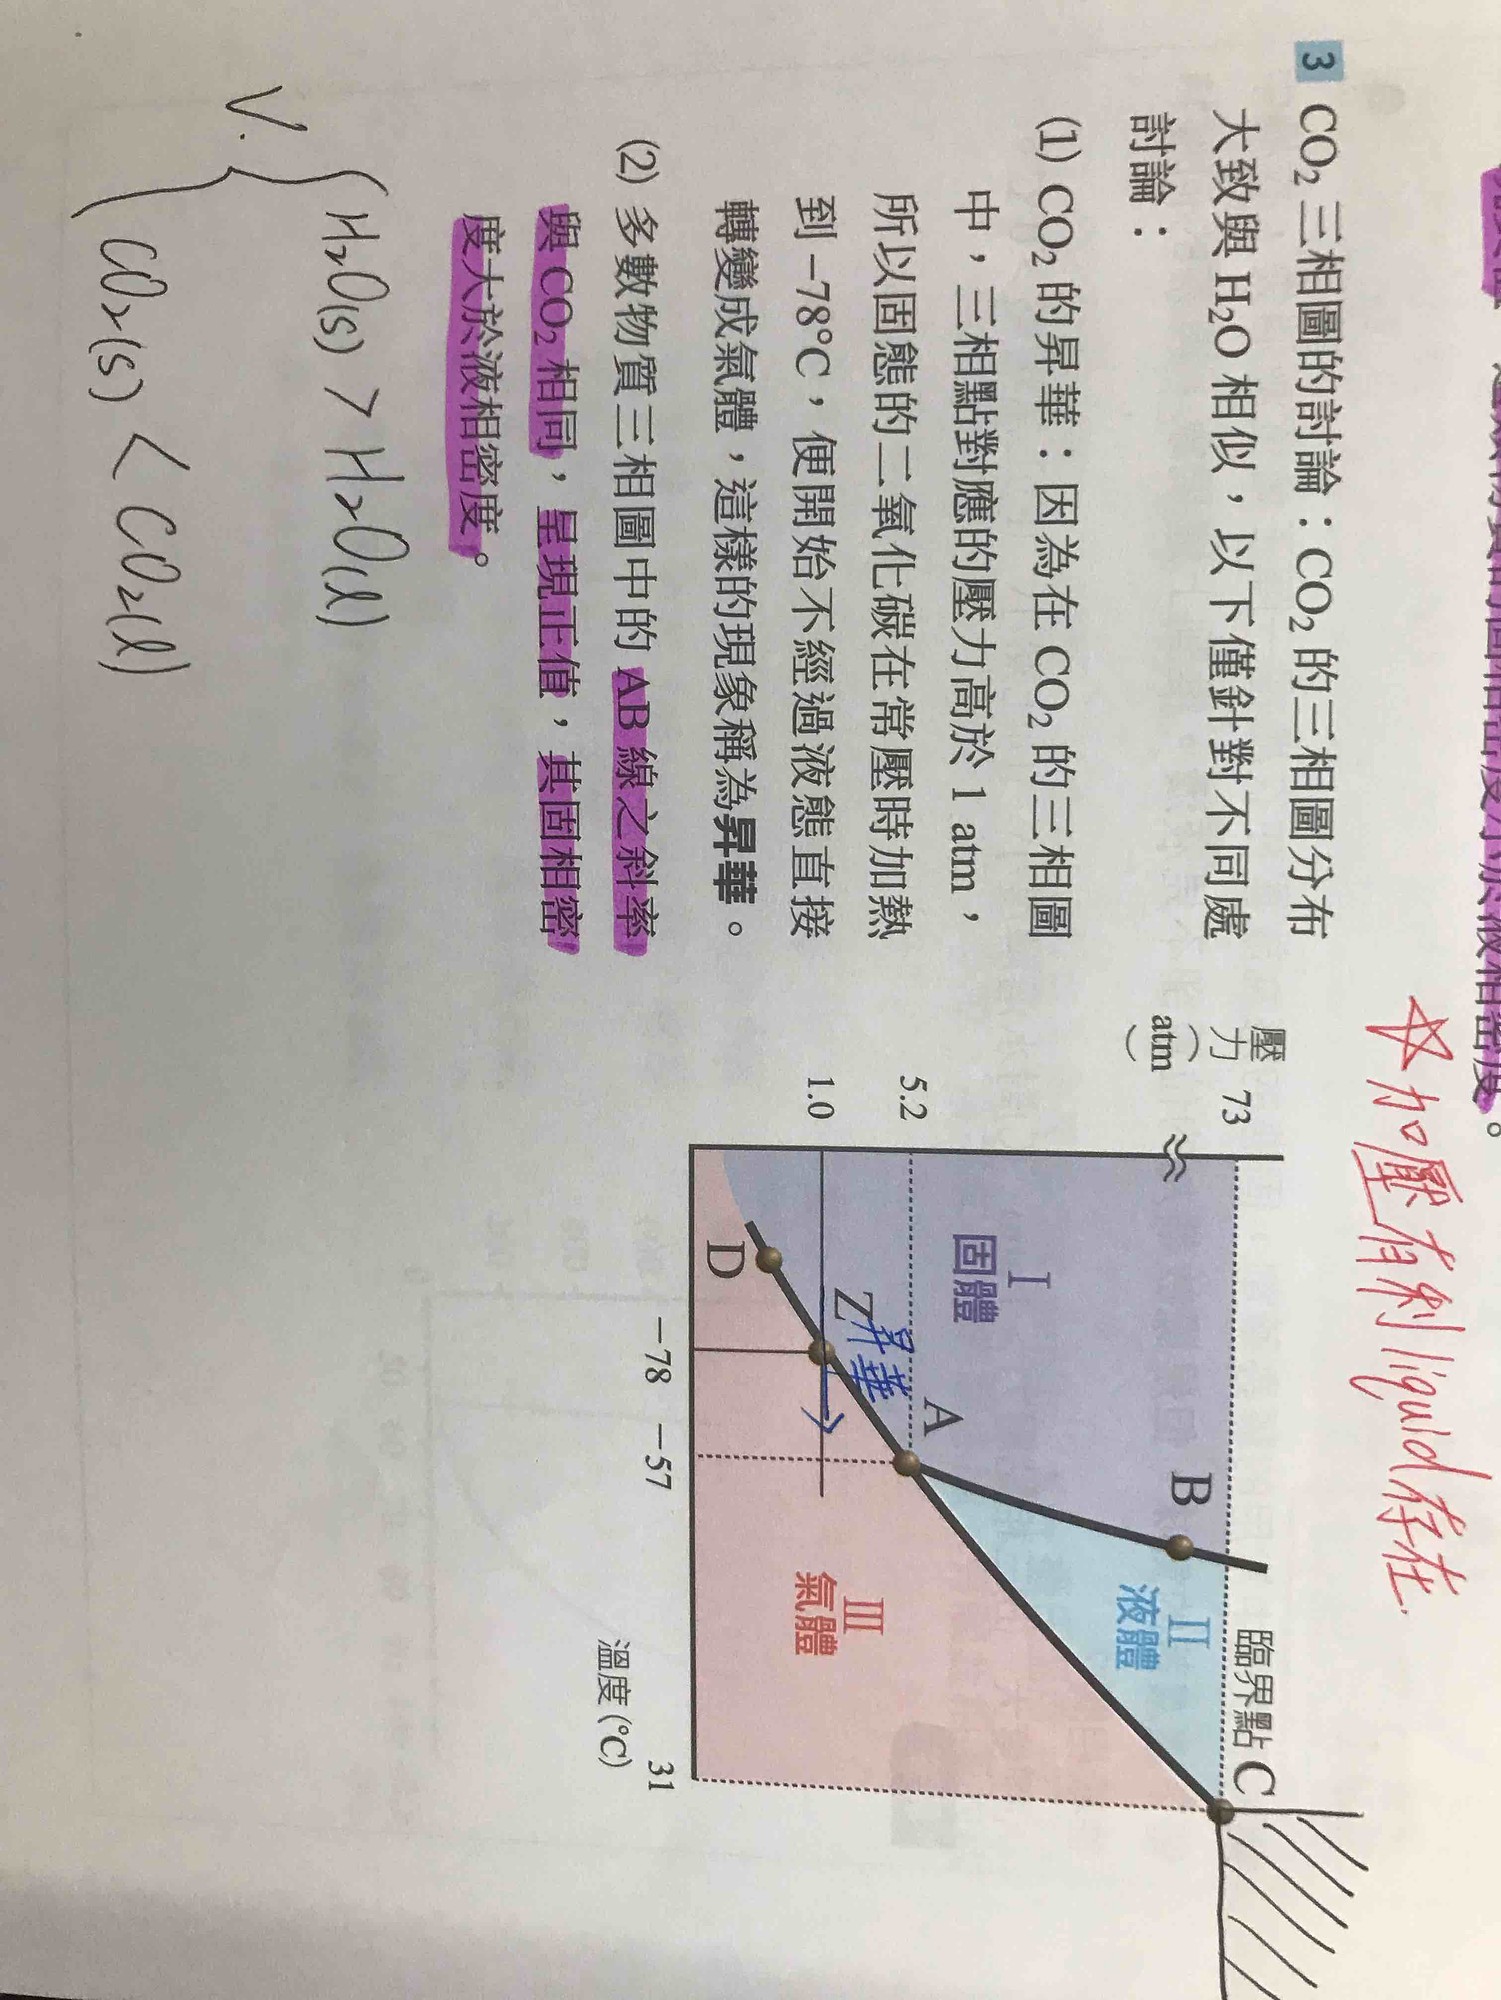 度小於液相密度。
☆加壓有利 liquid 存在.
3 CO₂ 三相圖的討論：CO₂ 的三相圖分布
大致與 H₂O 相似，以下僅針對不同處
討論：
(1) CO₂ 的昇華：因為在 CO₂ 的三相圖
中，三相點對應的壓力高於 1 atm，
所以固態的二氧化碳在常壓時加熱
到 −78°C，便開始不經過液態直接
轉變成氣體，這樣的現象稱為昇華。
(2) 多數物質三相圖中的 AB 線之斜率
與 CO₂ 相同，呈現正值，其固相密
度大於液相密度。
V.
H₂O(s) > H₂O(l)
CO₂(s) < CO₂(l)
壓力(atm)
73
5.2
1.0
臨界點 C
B
I
固體
II
液體
A
Z
昇華
III
氣體
D
−78
−57
31
溫度(°C)